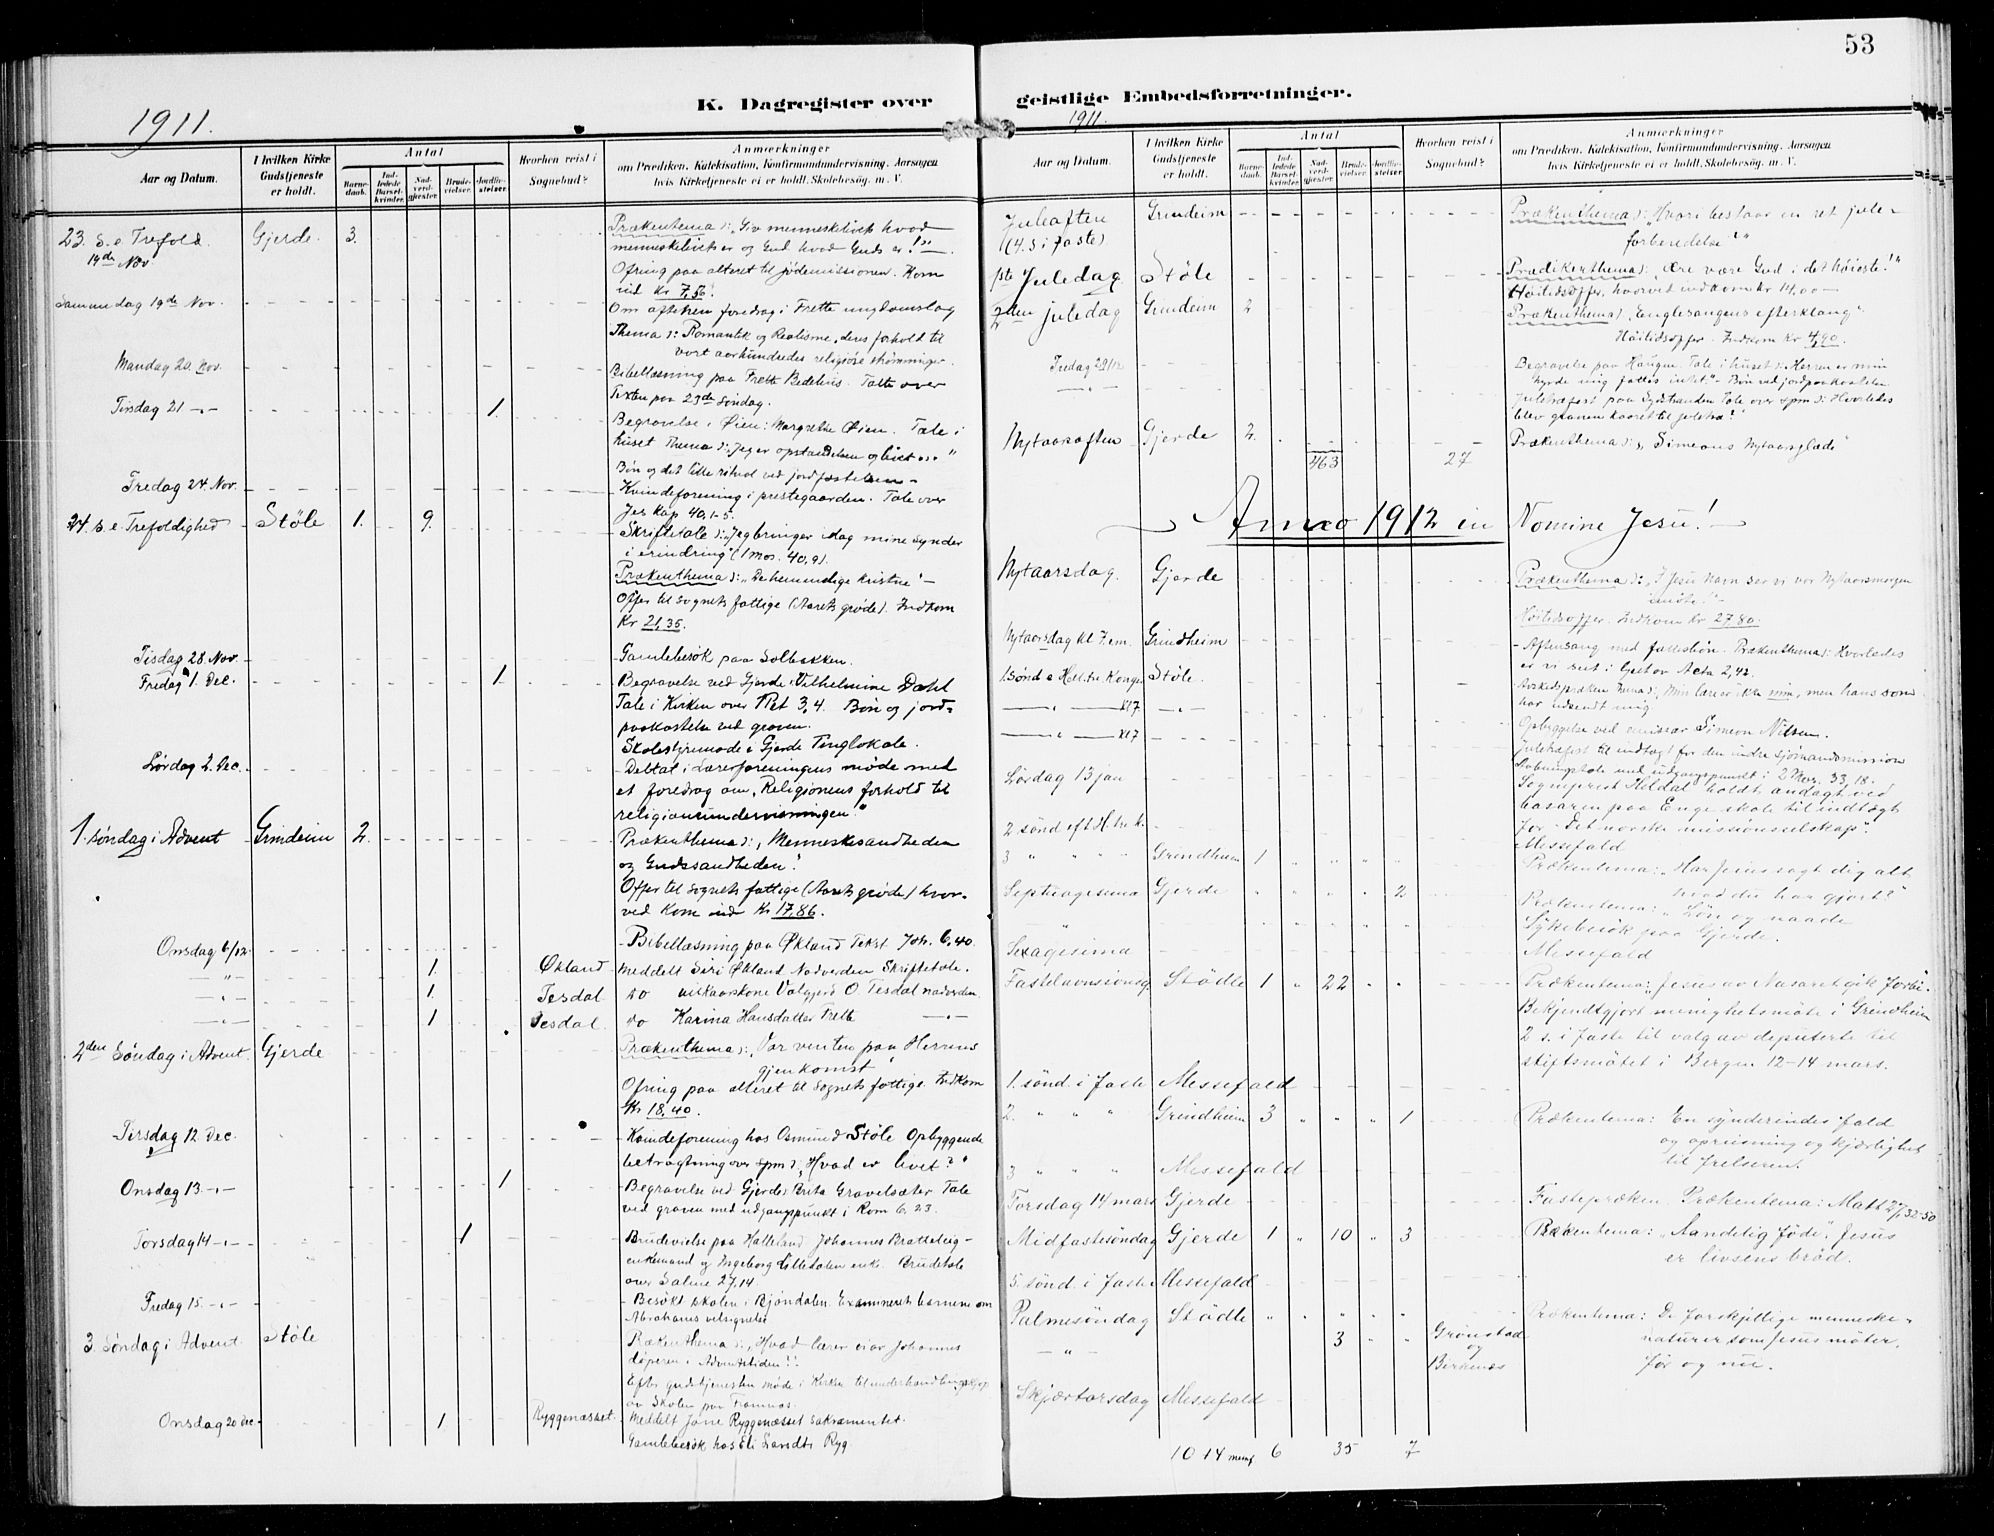 53
K. Dagregister over geistlige Embedsforretninger.
1911.
Aar og Datum.
I hvilken Kirke Gudstjeneste er holdt.
Antal
Barnedaab.
Indledede Barselkvinder.
Nadverdgjæster.
Brudevielser.
Jordfæstelser.
Hvorhen reist i Sognebud?
Anmærkninger
om Prædiken, Katekisation, Konfirmandundervisning, Aarsagen
hvis Kirketjeneste ei er holdt, Skolebesøg, m. V.
23. S. e. Trefold. Gjerde. 3. Prækentema ɔ: „Giv menneskelivet hvad
19de Nov menneskelivets er og Gud hvad Guds er!"
Ofring paa alteret til jødemissionen. Kom
ind Kr 7,50.
Samme dag 19de Nov. Om aftenen foredrag i Frette ungdomslag
Thema ɔ: Romantik og Realisme, deres forhold til
vort aarhundredes religiøse strømninger.
Mandag 20. Nov. Bibellæsning paa Frette Bedehus. Talte over
Texten paa 23de Søndag.
Tirsdag 21 -"- 1. Begravelse i Øien: Margrethe Øien. Tale i
huset Thema ɔ: Jeg er opstandelsen og livet
Bøn og det lille ritual ved jordfæstelsen
Fredag 24. Nov. Kvindeforening i prestegaarden. Tale over
Jes kap 40,1-5.
24. S. e. Trefoldighed Støle 1. 9. Skriftetale ɔ: „Jeg bringer idag mine synder
i erindring" (1 Mos. 40,9).
Prækenthema ɔ: „De hemmelige kristne"
Offer til sognets fattige (Aarets grøde). Indkom
Kr 21,35.
Tisdag 28. Nov. Gamlebesøk paa Solbakken.
Fredag 1. Dec. 1 Begravelse ved Gjerde: Vilhelmine Dahl
Tale i Kirken over 1 Pet 3,4. Bøn og jord-
paakastelse ved graven.
Skolestyremøde i Gjerde Tinglokale.
Lørdag 2. Dec. Deltat i Lærerforeningens møde med
et foredrag om „Religionens forhold til
religionsundervisningen."
1. søndag i Advent Grindeim 2. Prækenthema ɔ: „Menneskesandheden
og Gudssandheden."
Offer til sognets fattige (Aarets grøde) hvor-
ved kom ind Kr 17,86.
Onsdag 6/12. Bibellæsning paa Økland Tekst Joh. 6,40
-"- 1. Økland Meddelt Siri Økland Nadverden Skriftetale.
-"- 1. Tesdal do vilkaarskone Valgjerd O. Tesdal nadverden
-"- 1 Tesdal. do Karina Hansdatter Frette -"-
2den Søndag i Advent. Gjerde Prækenthema ɔ: „Vor venten paa Herrens
gjenkomst"
Ofring paa alteret til sognets fattige. Indkom
Kr 18,40.
Tirsdag 12 Dec. Kvindeforening hos Osmund Støle Opbyggende
betragtning over spm ɔ: „Hvad er livet?"
Onsdag 13 -"- 1 Begravelse ved Gjerde: Brita Gravelsæter Tale
ved graven med udgangspunkt i Rom 6. 23.
Torsdag 14 -"- 1 Brudevielse paa Halleland Johannes Brattelvig
enkemand og Ingeborg Lilledalen enk. Brudetale
over Salme 27.14.
Fredag 15. -"- Besøkt skolen i Bjøndalen. Examineret barnene om
Abrahams velsignelse
3. Søndag i Advent Støle Prækenthema ɔ: „Hvad lærer vi av Johannes
døperen i Adventstiden?"
Efter gudstjenesten møde i Kirken til underhandling
av Skolen paa Framnæs.
Onsdag 20 Dec. 1 Ryggenæsset. Meddelt Jone Ryggenæsset sakramentet.
Gamlebesøk hos Eli Larsdtr Ryg.
1911.
Aar og Datum.
I hvilken Kirke Gudstjeneste er holdt.
Antal
Barnedaab.
Indledede Barselkvinder.
Nadverdgjæster.
Brudevielser.
Jordfæstelser.
Hvorhen reist i Sognebud?
Anmærkninger
om Prædiken, Katekisation, Konfirmandundervisning, Aarsagen
hvis Kirketjeneste ei er holdt, Skolebesøg, m. V.
Juleaften Grindeim Prækenthema ɔ: „Hvori bestaar en ret jule-
(4. S i faste) forberedelse?"
1ste Juledag Støle Prædikenthema ɔ: „Ære være Gud i det høieste!"
Høitidsoffer, hvorved indkom kr 14,00
2den juledag Grindeim 2 Prækenthema ɔ „Englesangens efterklang"
Høitidsoffer. Indkom Kr 4,90.
Fredag 29/12 Begravelse paa Haugen. Tale i huset ɔ: „Herren er min
hyrde mig fattes intet" - Bøn ved jordpaakastelsen
-"- Juletræfest paa Sydstranden Tale over spm ɔ: Hvorledes
blev granen kaaret til juletræ?
Nytaarsaften Gjerde 2. Prækenthema ɔ: „Simeons Nytaarsglæde"
463 27
Anno 1912 in Nomine Jesu!
Nytaarsdag. Gjerde Prækenthema ɔ: „I Jesu navn ser vi vor Nytaarsmorgen
imøte!"
Høitidsoffer. Indkom Kr 27.80.
Nytaarsdag kl 7 em. Grindheim Aftensang med fællesbøn. Prækenthema ɔ: Hvorledes
er vi sent i Acta 2,42.
1. Sønd e Hell. tre Konger Støle. Avskedspræken Tema ɔ: „Min lære er ikke min, men hans som
har udsendt mig
-"- Kl 7 -"- Opbyggelse ved emissær Simeon Nilsen.
-"- Kl 7 Juletræfest til indtægt for den indre sjømandsmission
Aabningstale med udgangspunkt i 2 Mos. 33,18.
Lørdag 13 jan Sogneprest Hildal holdt andagt ved
basaren paa Enge skole til indtægt
for „Det norske missionsselskap".
2 sønd eft H. tre k. Messefald
3 " " " Grindheim 1 " " " " Prækentema: „Har Jesus sagt dig alt
hvad du har gjort?"
Septuagesima Gjerde " " " " 2 Prækentema: „Løn og naade
Sykebesøk paa Gjerde.
Sexagesima Messefald
Fastelavnssøndag Stødle 1 " 22 " " Prækentema: „Jesus av Nasaret gik forbi"
Bekjendtgjort menighetsmøte i Grindheim
2 s. i faste til valg av deputerte til
stiftsmøtet i Bergen 12-14 mars.
1. sønd. i faste Messefald
2. " " " Grindheim 3 " " " 1 Prækentema: En synderindes fald
og opreisning og kjærlighet
til frelseren.
3 " " " Messefald
Torsdag 14 mars Gjerde Fastepræken. Prækentema: Matt 27,32-50
Midfastesøndag Gjerde 1 " 10 " 3 Prækentema: „Aandelig føde". Jesus
er livsens brød.
5. sønd. i faste Messefald
Palmesøndag Stødle " " " " " Prækentema: De forskjellige menneske-
naturer som Jesus møter,
før og nu.
-"- 3 " " Grønstad og Birkenæs
Skjærtorsdag Messefald
10 14 6 35 7